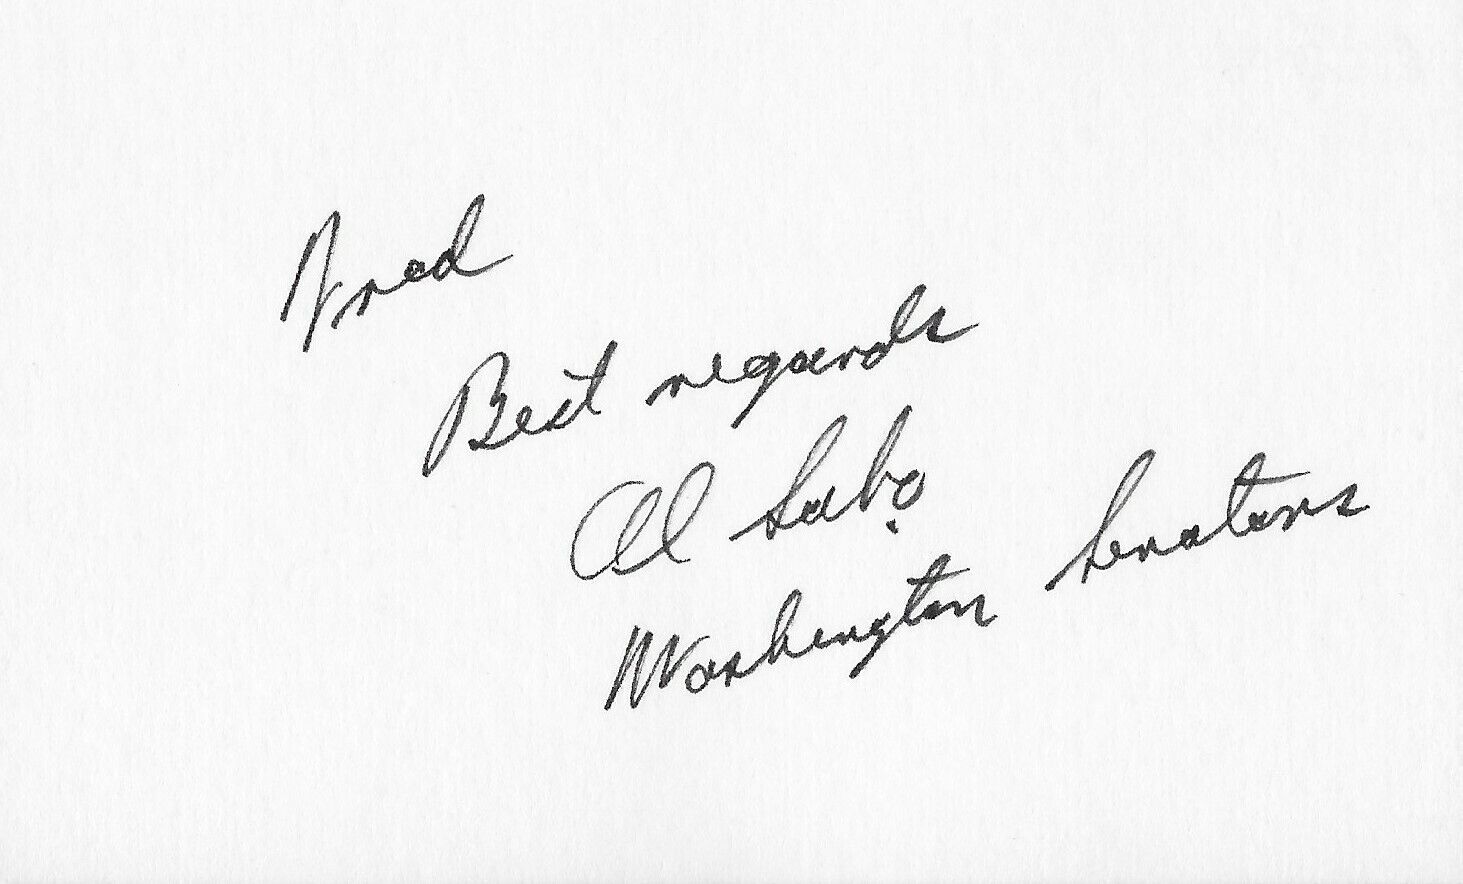 Fred
Best regards
Al Sabo
Washington Senators